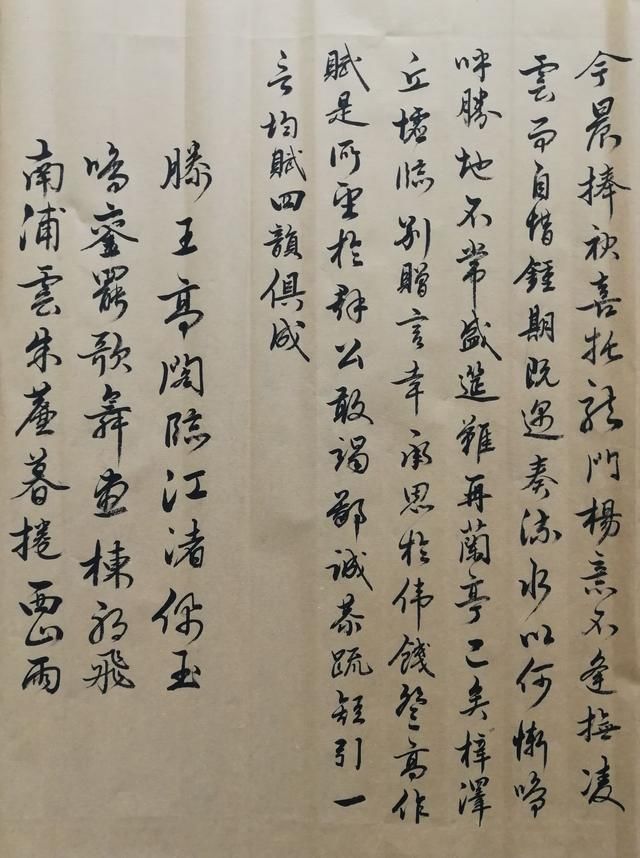 今晨捧袂喜托龍門楊意不逢撫凌
雲而自惜鍾期既遇奏流水以何慚嗚
呼勝地不常盛筵難再蘭亭已矣梓澤
丘墟臨別贈言幸承恩於伟餞登高作
賦是所望於群公敢竭鄙誠恭疏短引一
言均賦四韻俱成
滕王高閣臨江渚佩玉
鳴鑾罷歌舞畫棟朝飛
南浦雲朱簾暮捲西山雨